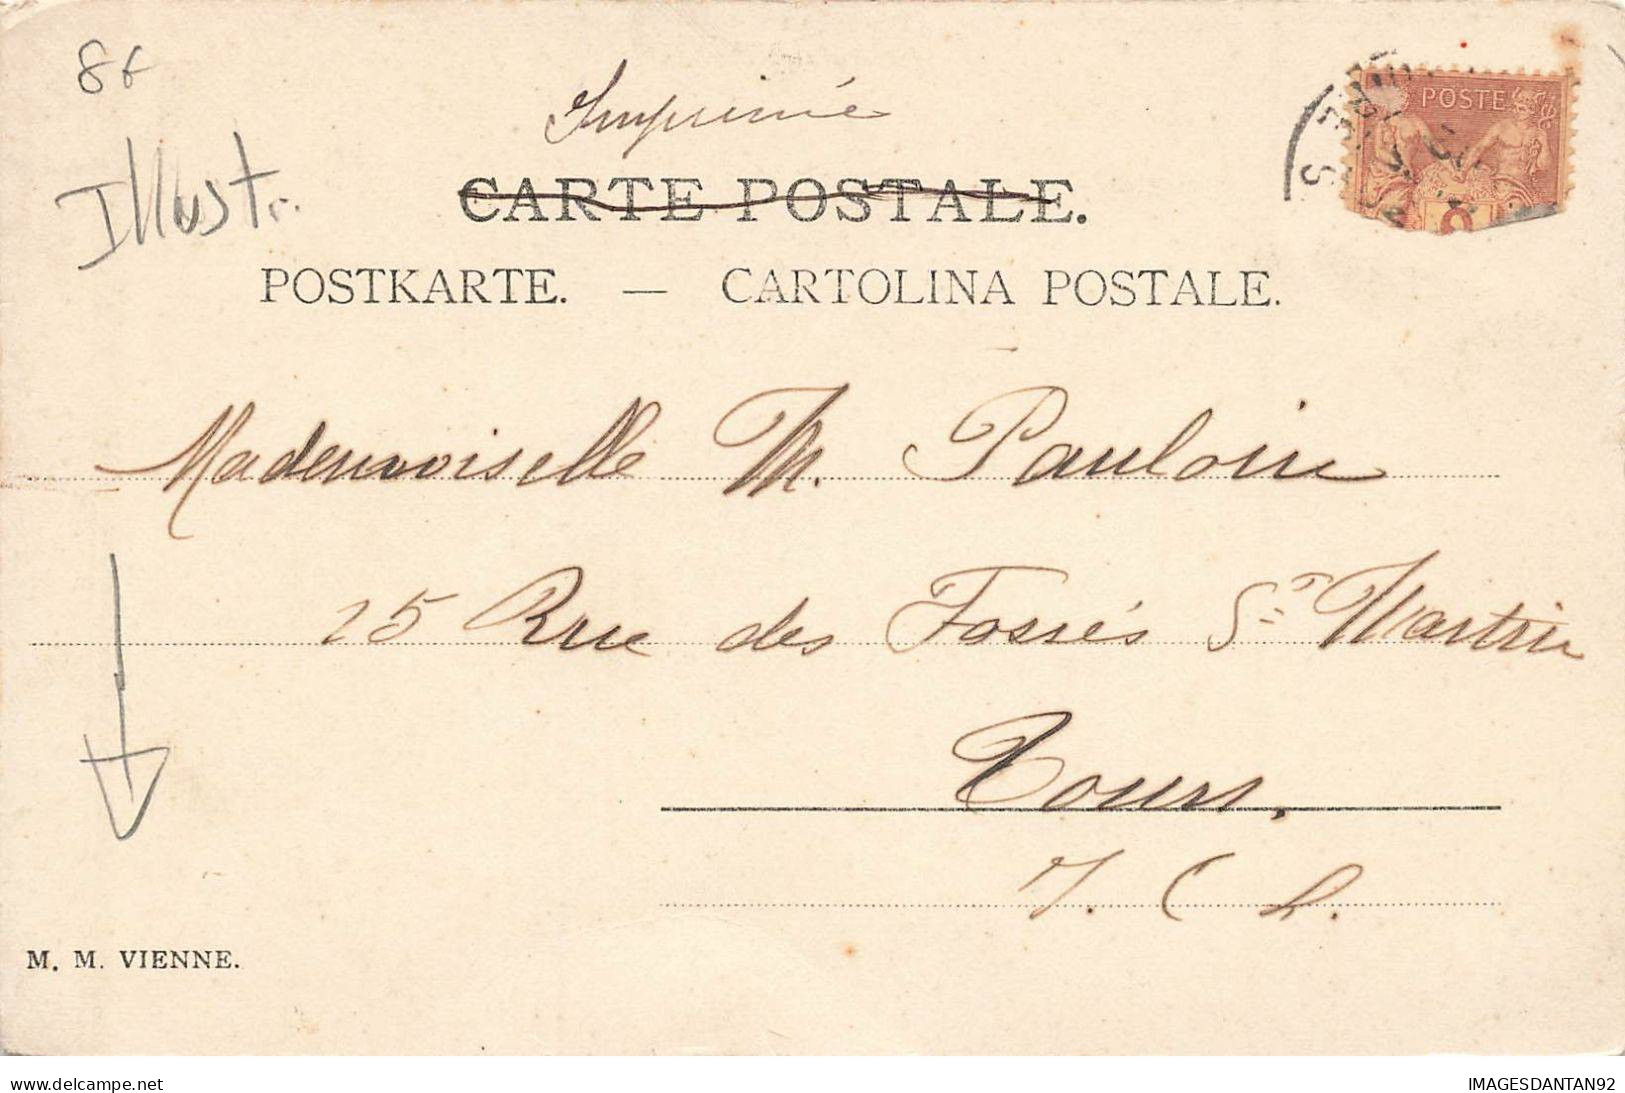 8f
Illustr.
Imprimée
POSTE
CARTE POSTALE.
POSTKARTE. — CARTOLINA POSTALE.
Mademoiselle Th. Pauloin
25 Rue des Fossés St Martin
Tours.
I. &
M. M. VIENNE.
www.delcampe.net
IMAGESDANTAN92